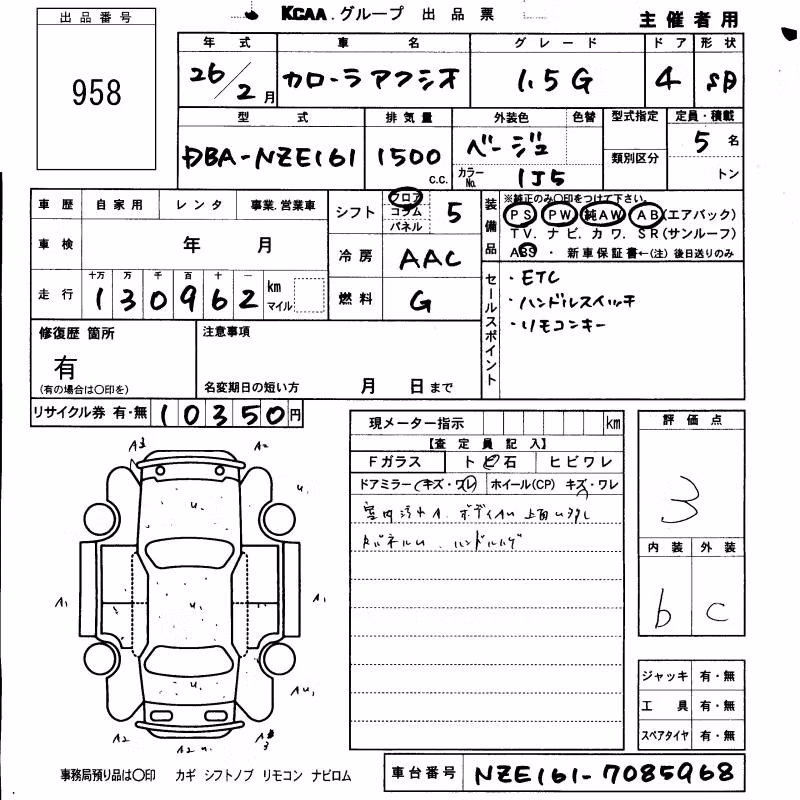 出品番号
958
KCAA.グループ 出品票
主催者用
年式 車名 グレード ドア 形状
26/2月 カローラアクシオ 1.5G 4 SD
型式 排気量 外装色 色替 型式指定 定員・積載
DBA-NZE161 1500 c.c. ベージュ 5名
類別区分 トン
カラーNo. 1J5
車歴 自家用 レンタ 事業.営業車
車検 年 月
走行 十万 万 千 百 十 一
130962 km マイル
シフト フロア コラム パネル 5
冷房 AAC
燃料 G
装備品 ※純正のみ○印をつけて下さい。
PS PW 純AW AB(エアバック)
TV. ナビ. カワ. SR(サンルーフ)
ABS ・ 新車保証書←(注) 後日送りのみ
セールスポイント
・ETC
・ハンドルスイッチ
・リモコンキー
修復歴 箇所
有
(有の場合は○印を)
注意事項
名変期日の短い方 月 日まで
リサイクル券 有・無 10350円
現メーター指示 km
【査定員記入】
Fガラス トビ石 ヒビワレ
ドアミラー(キズ・ワレ) ホイール(CP) キズ・ワレ
室内汚れ
評価点
3
内装 外装
b c
A3 A2
A1 A1
A2 A2
ジャッキ 有・無
工具 有・無
スペアタイヤ 有・無
事務局預り品は○印 カギ シフトノブ リモコン ナビロム
車台番号 NZE161-7085968